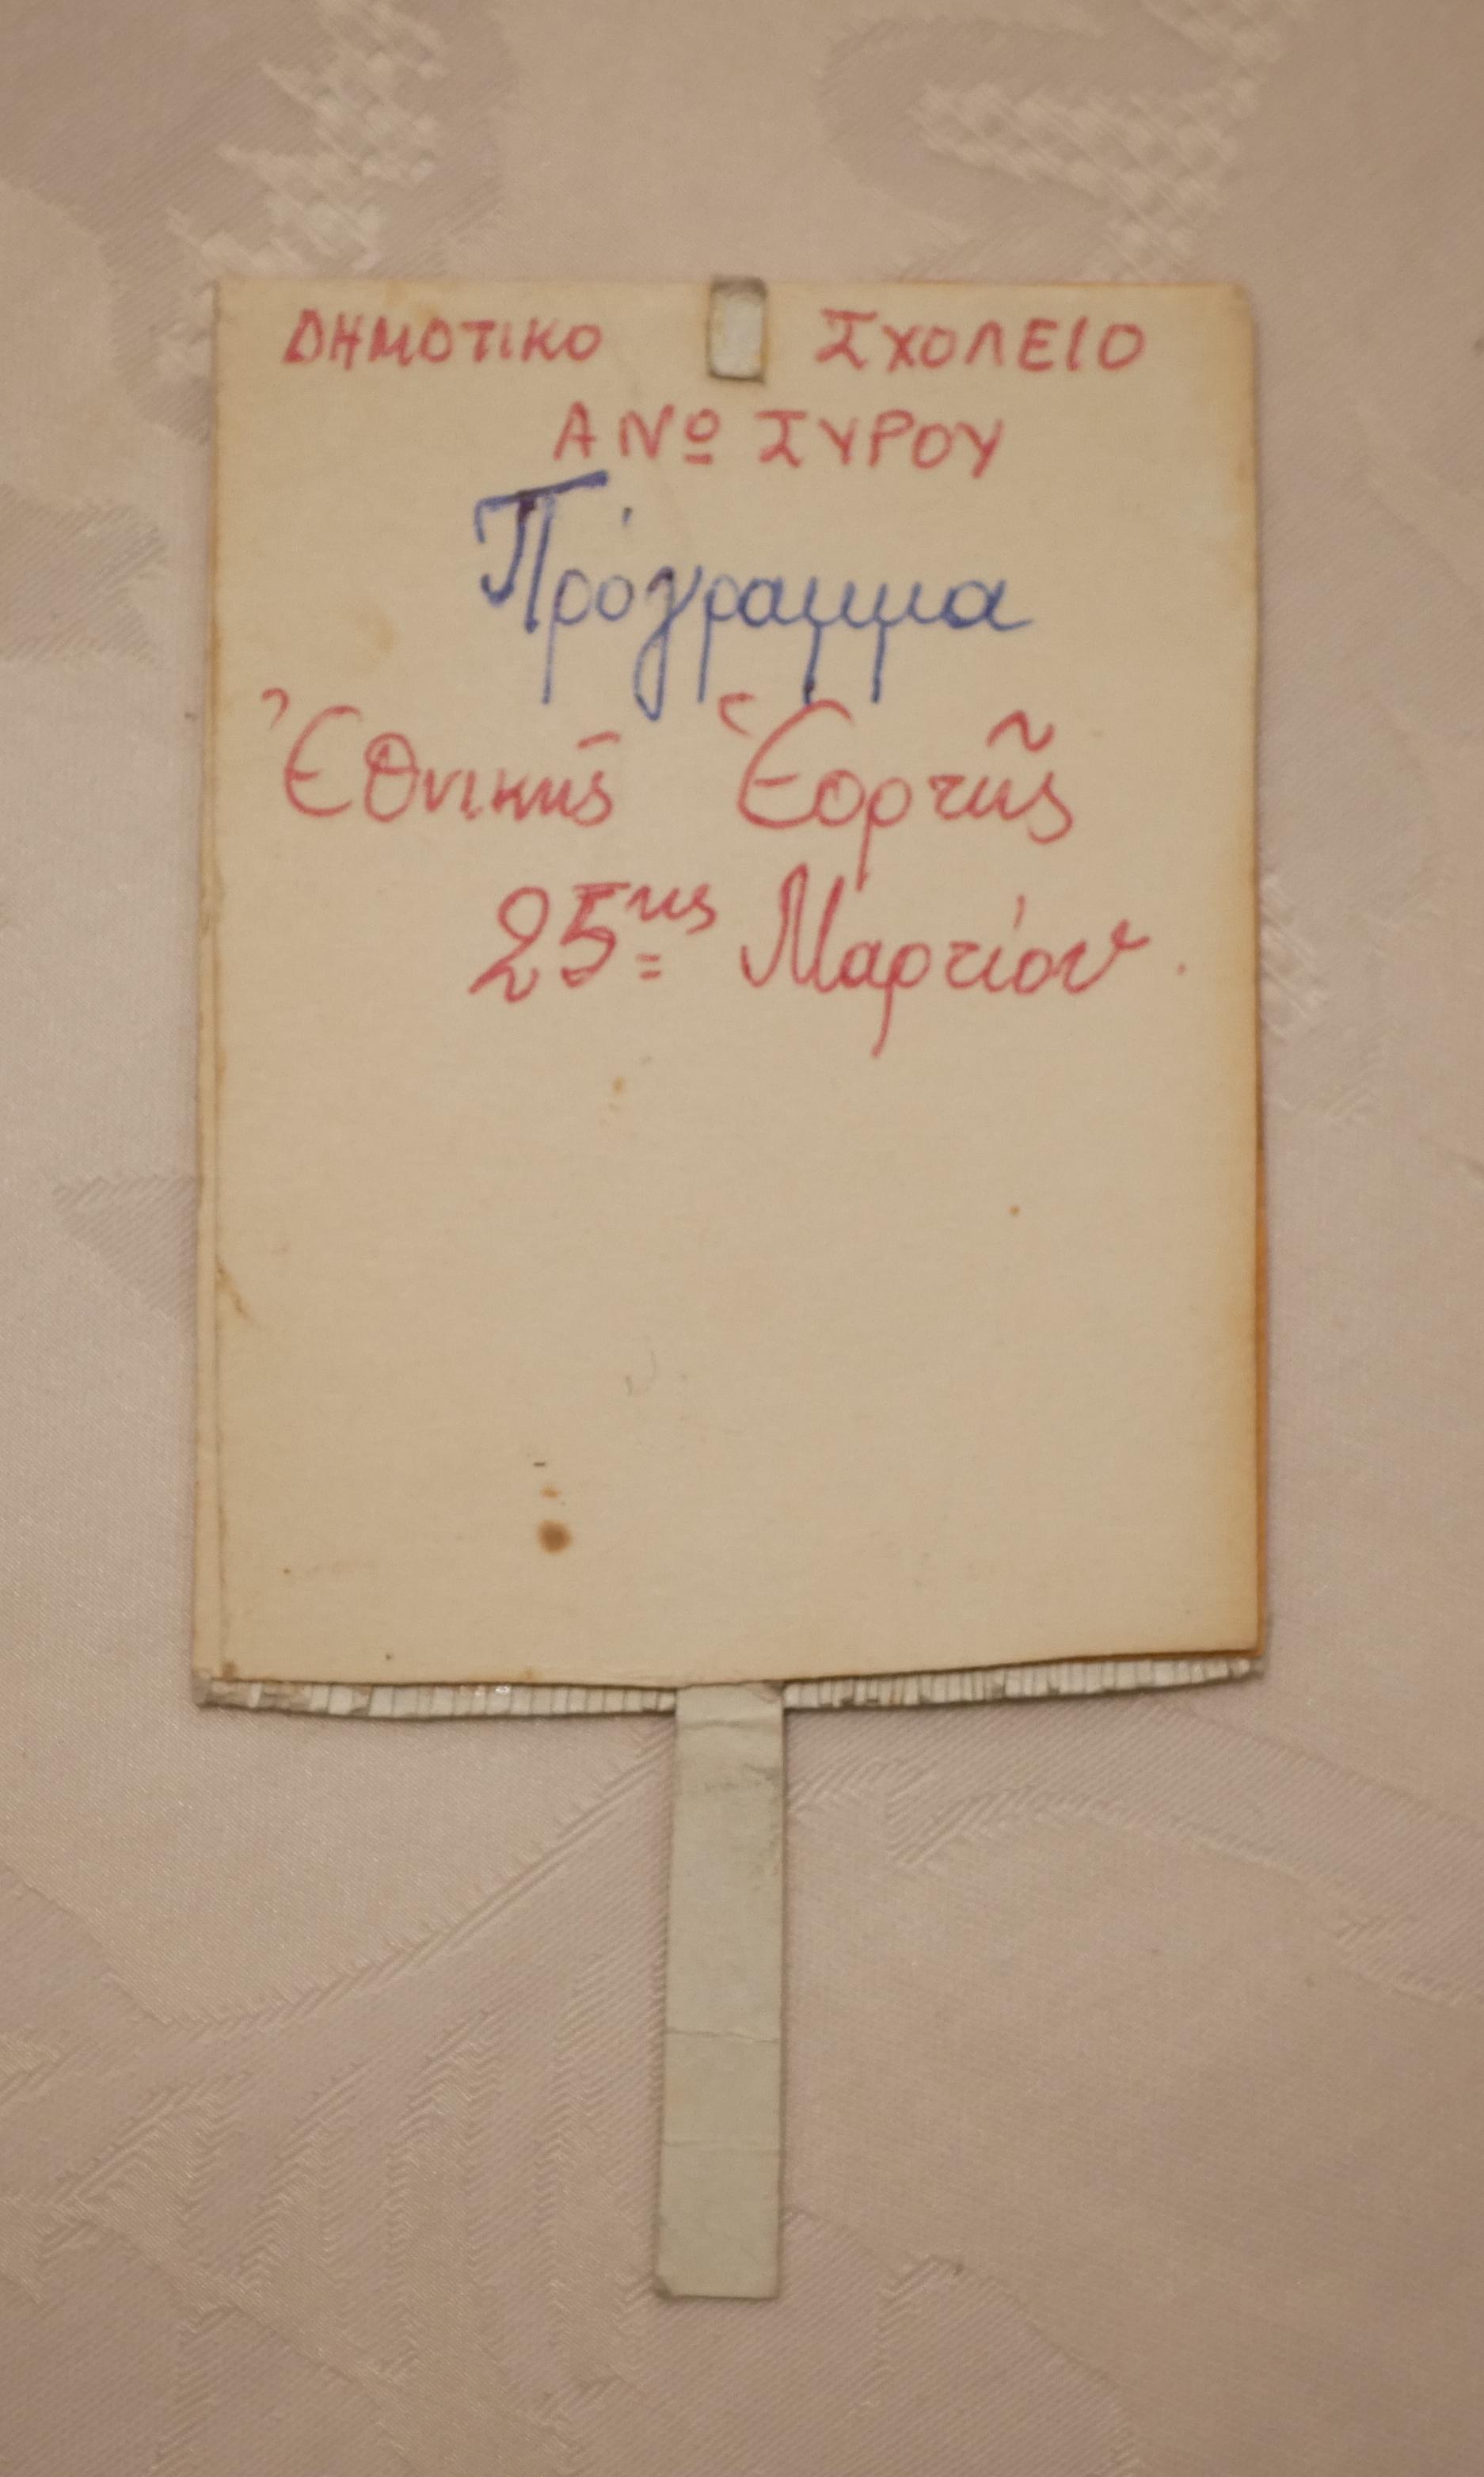 ΔΗΜΟΤΙΚΟ ΣΧΟΛΕΙΟ
ΑΝΩ ΣΥΡΟΥ
Πρόγραμμα
Ἐθνικῆς Ἑορτῆς
25ης Μαρτίου.